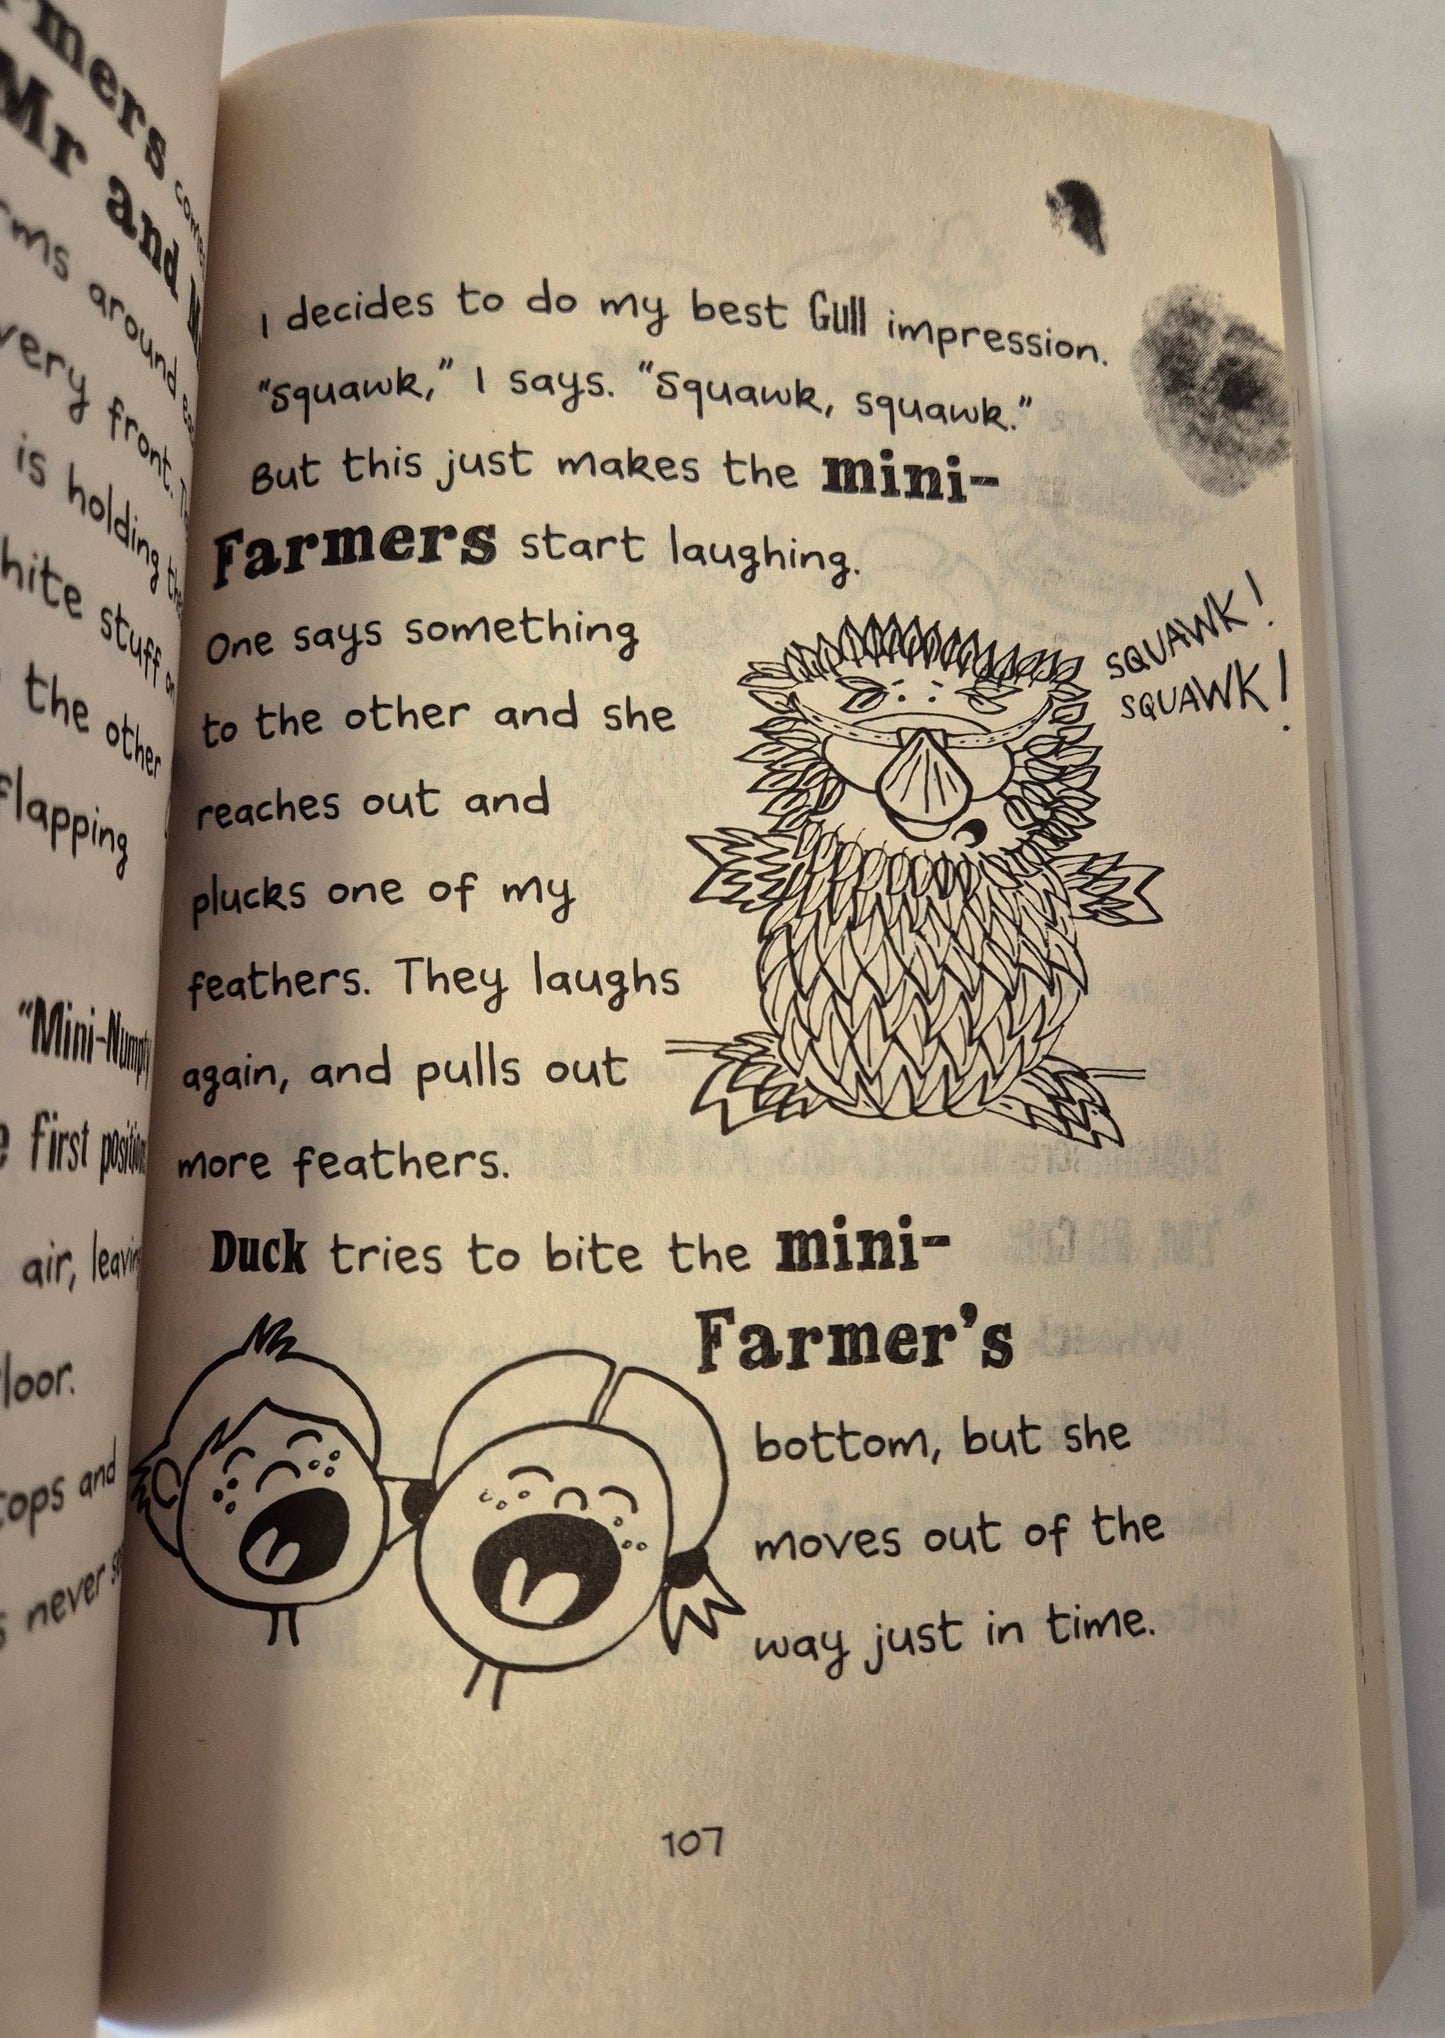 rmers
Mr and
rms around
very front.
is holding the
hite stuff on
the other
flapping
"Mini-Numpty
first position
air, leaving
loor.
tops and
never
I decides to do my best Gull impression.
"Squawk," I says. "Squawk, squawk."
But this just makes the mini-
Farmers start laughing.
One says something
to the other and she
reaches out and
plucks one of my
feathers. They laughs
again, and pulls out
more feathers.
SQUAWK!
SQUAWK!
Duck tries to bite the mini-
Farmer's
bottom, but she
moves out of the
way just in time.
107